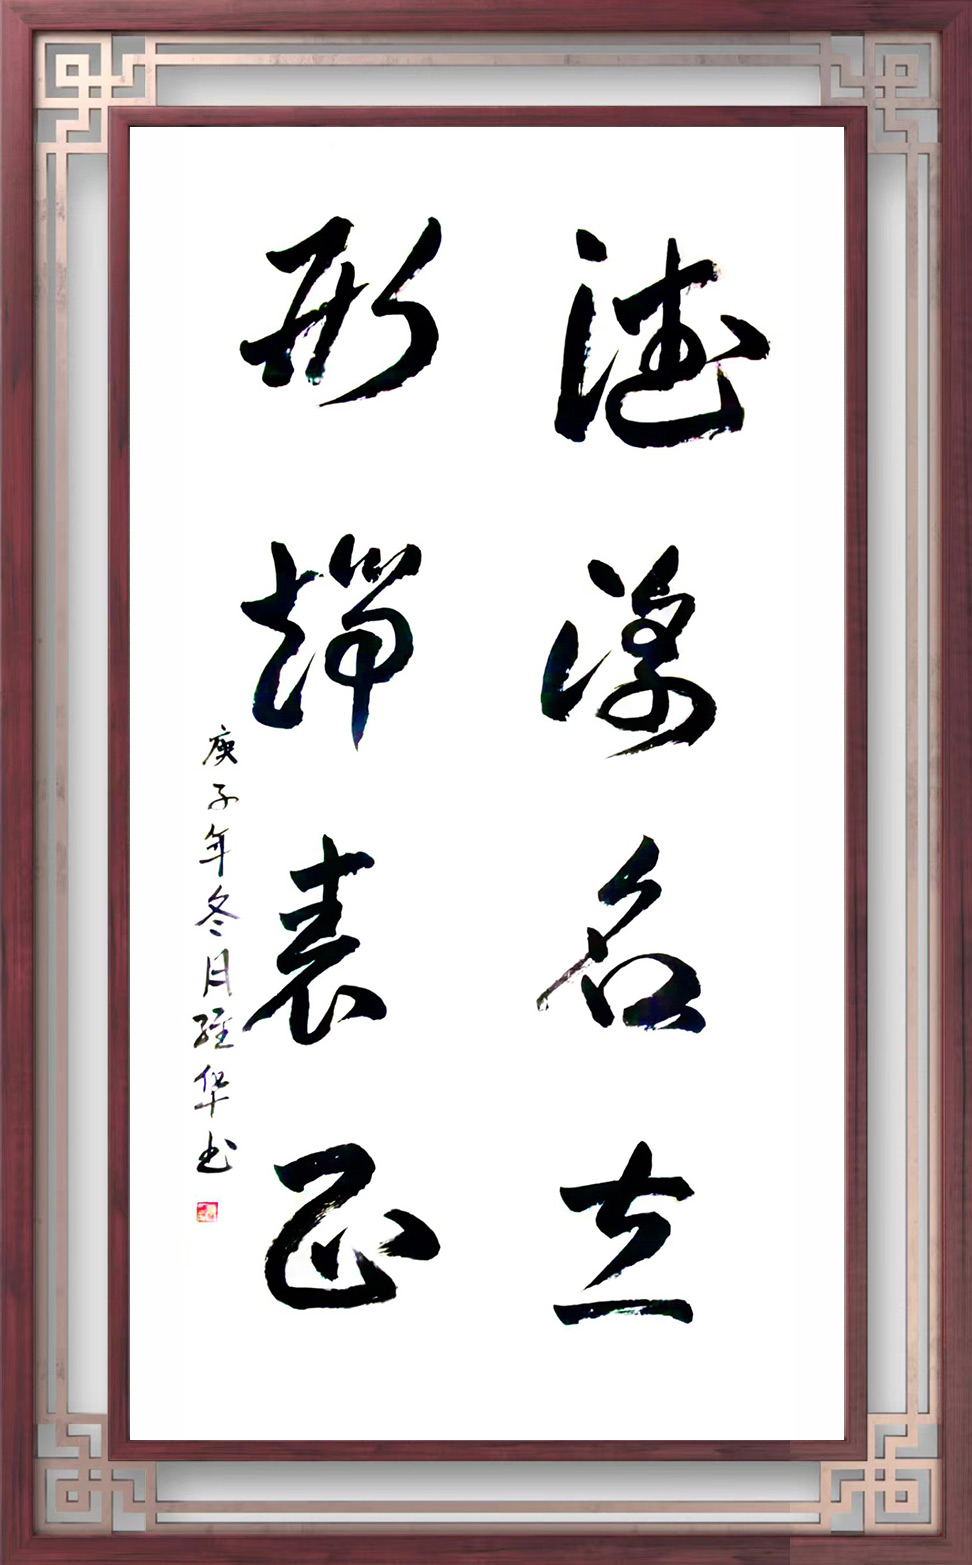 德名立
形端表正
庚子年冬月经华书